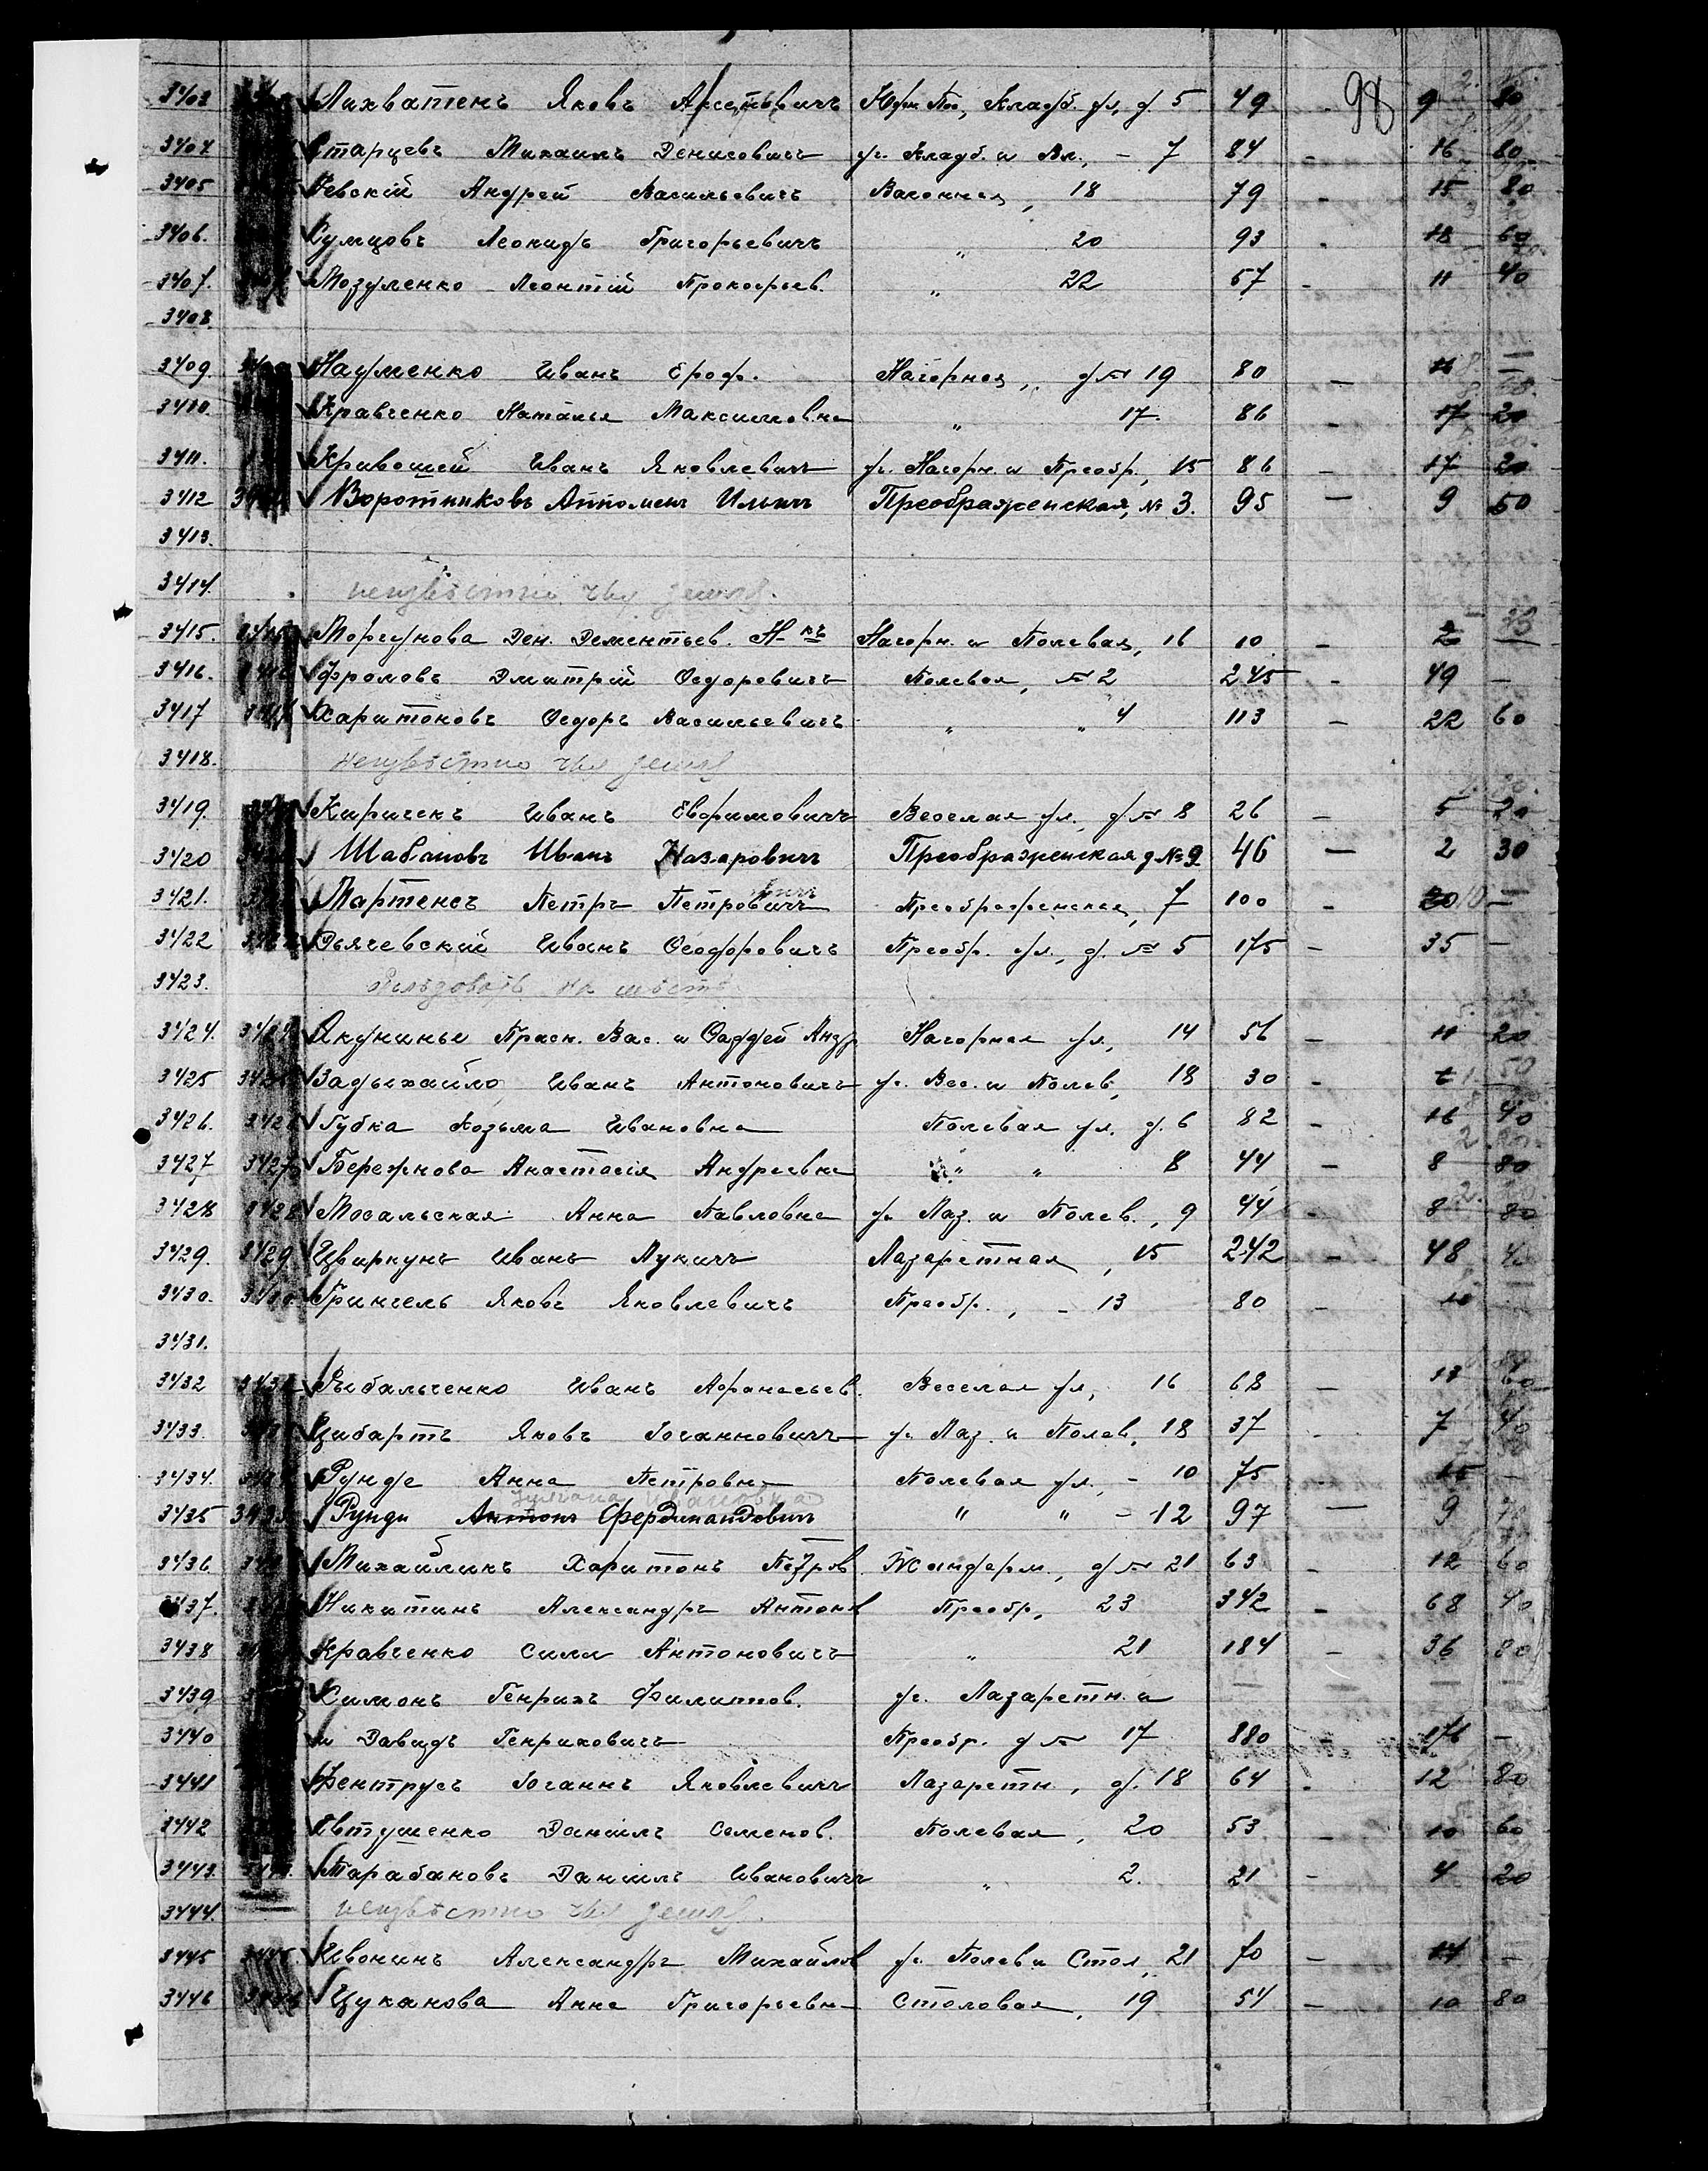 98
3403 Лихватенъ Яковъ Юрж. Пос., Кладб. ул., д. 5 49 - 9 80
3404 Старцевъ Михаилъ Денисовичъ уг. Кладб. и Вл., - 7 84 - 16 80
3405 Невскій Андрей Васильевичъ Вагонная, 18 79 - 15 80
3406. Сумцовъ Леонидъ Григорьевичъ " 20 93 - 18 60
3407. Мозуленко Леонтій Прокофьев. " 22 57 - 11 40
3408.
3409. Науменко Иванъ Ероф. Нагорная, д № 19 80 - 16 —
3410. Кравченко Наталья Максимовна " 17. 86 - 17 20
3411. Кривошей Иванъ Яковлевичъ уг. Нагорн. и Преобр., 15 86 - 17 20
3412 Воротниковъ Ильичъ Преображенская, № 3. 95 — 9 50
3413.
3414. неизвѣстно чья земля.
3415. 3415 Моргунова Ден. Дементьев. Н-къ Нагорн. и Полевая, 16 10 - 2
3416. Фроловъ Дмитрій Ѳедоровичъ Полевая, № 2 245 - 49 —
3417 Харитоновъ Ѳедоръ Васильевичъ " " 4 113 - 22 60
3418. неизвѣстно чья земля
3419. Киричекъ Иванъ Евфимовичъ Веселая ул., д № 8 26 - 5 20
3420 Шабановъ Иванъ Назаровичъ Преображенская д № 9 46 — 2 30
3421. Мартенсъ Петръ Петровичъ Преображенская, 7 100 - 20 10 —
3422 Дьячевскій Иванъ Ѳеодоровичъ Преобр. ул., д. № 5 175 - 35 —
3423. на мѣстѣ
3424. 3424 Якунины Праск. Вас. и Ѳаддей Андр Нагорная ул., 14 56 - 11 20
3425 3425 Задыхайло Иванъ Антоновичъ уг. Вес. и Полев, 18 30 - 1. 50
3426. 3426 Губка Козьма Ивановна Полевая ул. д. 6 82 - 16 40
3427 3427 Бережнова Анастасія Андреевна " " 8 44 - 8 80
3428 3428 Мосальская Анна Павловна уг. Лаз. и Полев., 9 44 - 8 80
3429. 3429 Цвиркунъ Иванъ Лукичъ Лазаретная, 15 242 - 48 40
3430. 3430 Грингель Яковъ Яковлевичъ Преобр., - 13 80 - 16 —
3431.
3432 3432 Рыбальченко Иванъ Афанасьев. Веселая ул., 16 68 - 13 60
3433. Цибартъ Яковъ Іоганновичъ уг. Лаз. и Полев, 18 37 - 7 40
3434. Рунде Анна Петровна Полевая ул., - 10 75 - 15 —
Ивановна
3435 3435 Рунди Антонъ Фердинандовичъ " " - 12 97 — 9 70
3436 Михайлинъ Харитонъ Петров. Жандарм., д № 21 63 - 12 60
3437. Никитинъ Александръ Антонов Преобр., 23 342 - 68 40
3438 Кравченко Сила Антоновичъ " 21 184 - 36 80
3439 Симонъ Генрихъ Филиппов. уг. Лазаретн. и — — — —
3440 и Давидъ Генриховичъ Преобр. д № 17 880 - 176 —
3441 Фентрусъ Іоганнъ Яковлевичъ Лазаретн., д. 18 64 - 12 80
3442 Евтушенко Даніилъ Семенов. Полевая, 20 53 - 10 60
3443. Тарабановъ Даніилъ Ивановичъ " 2. 21 - 4 20
3444. неизвѣстно чья земля.
3445 3445. Ивонинъ Александръ Михайлов уг. Полев и Стол, 21 70 - 14 —
3446 Цуканова Анна Григорьевна Столовая, 19 54 - 10 80